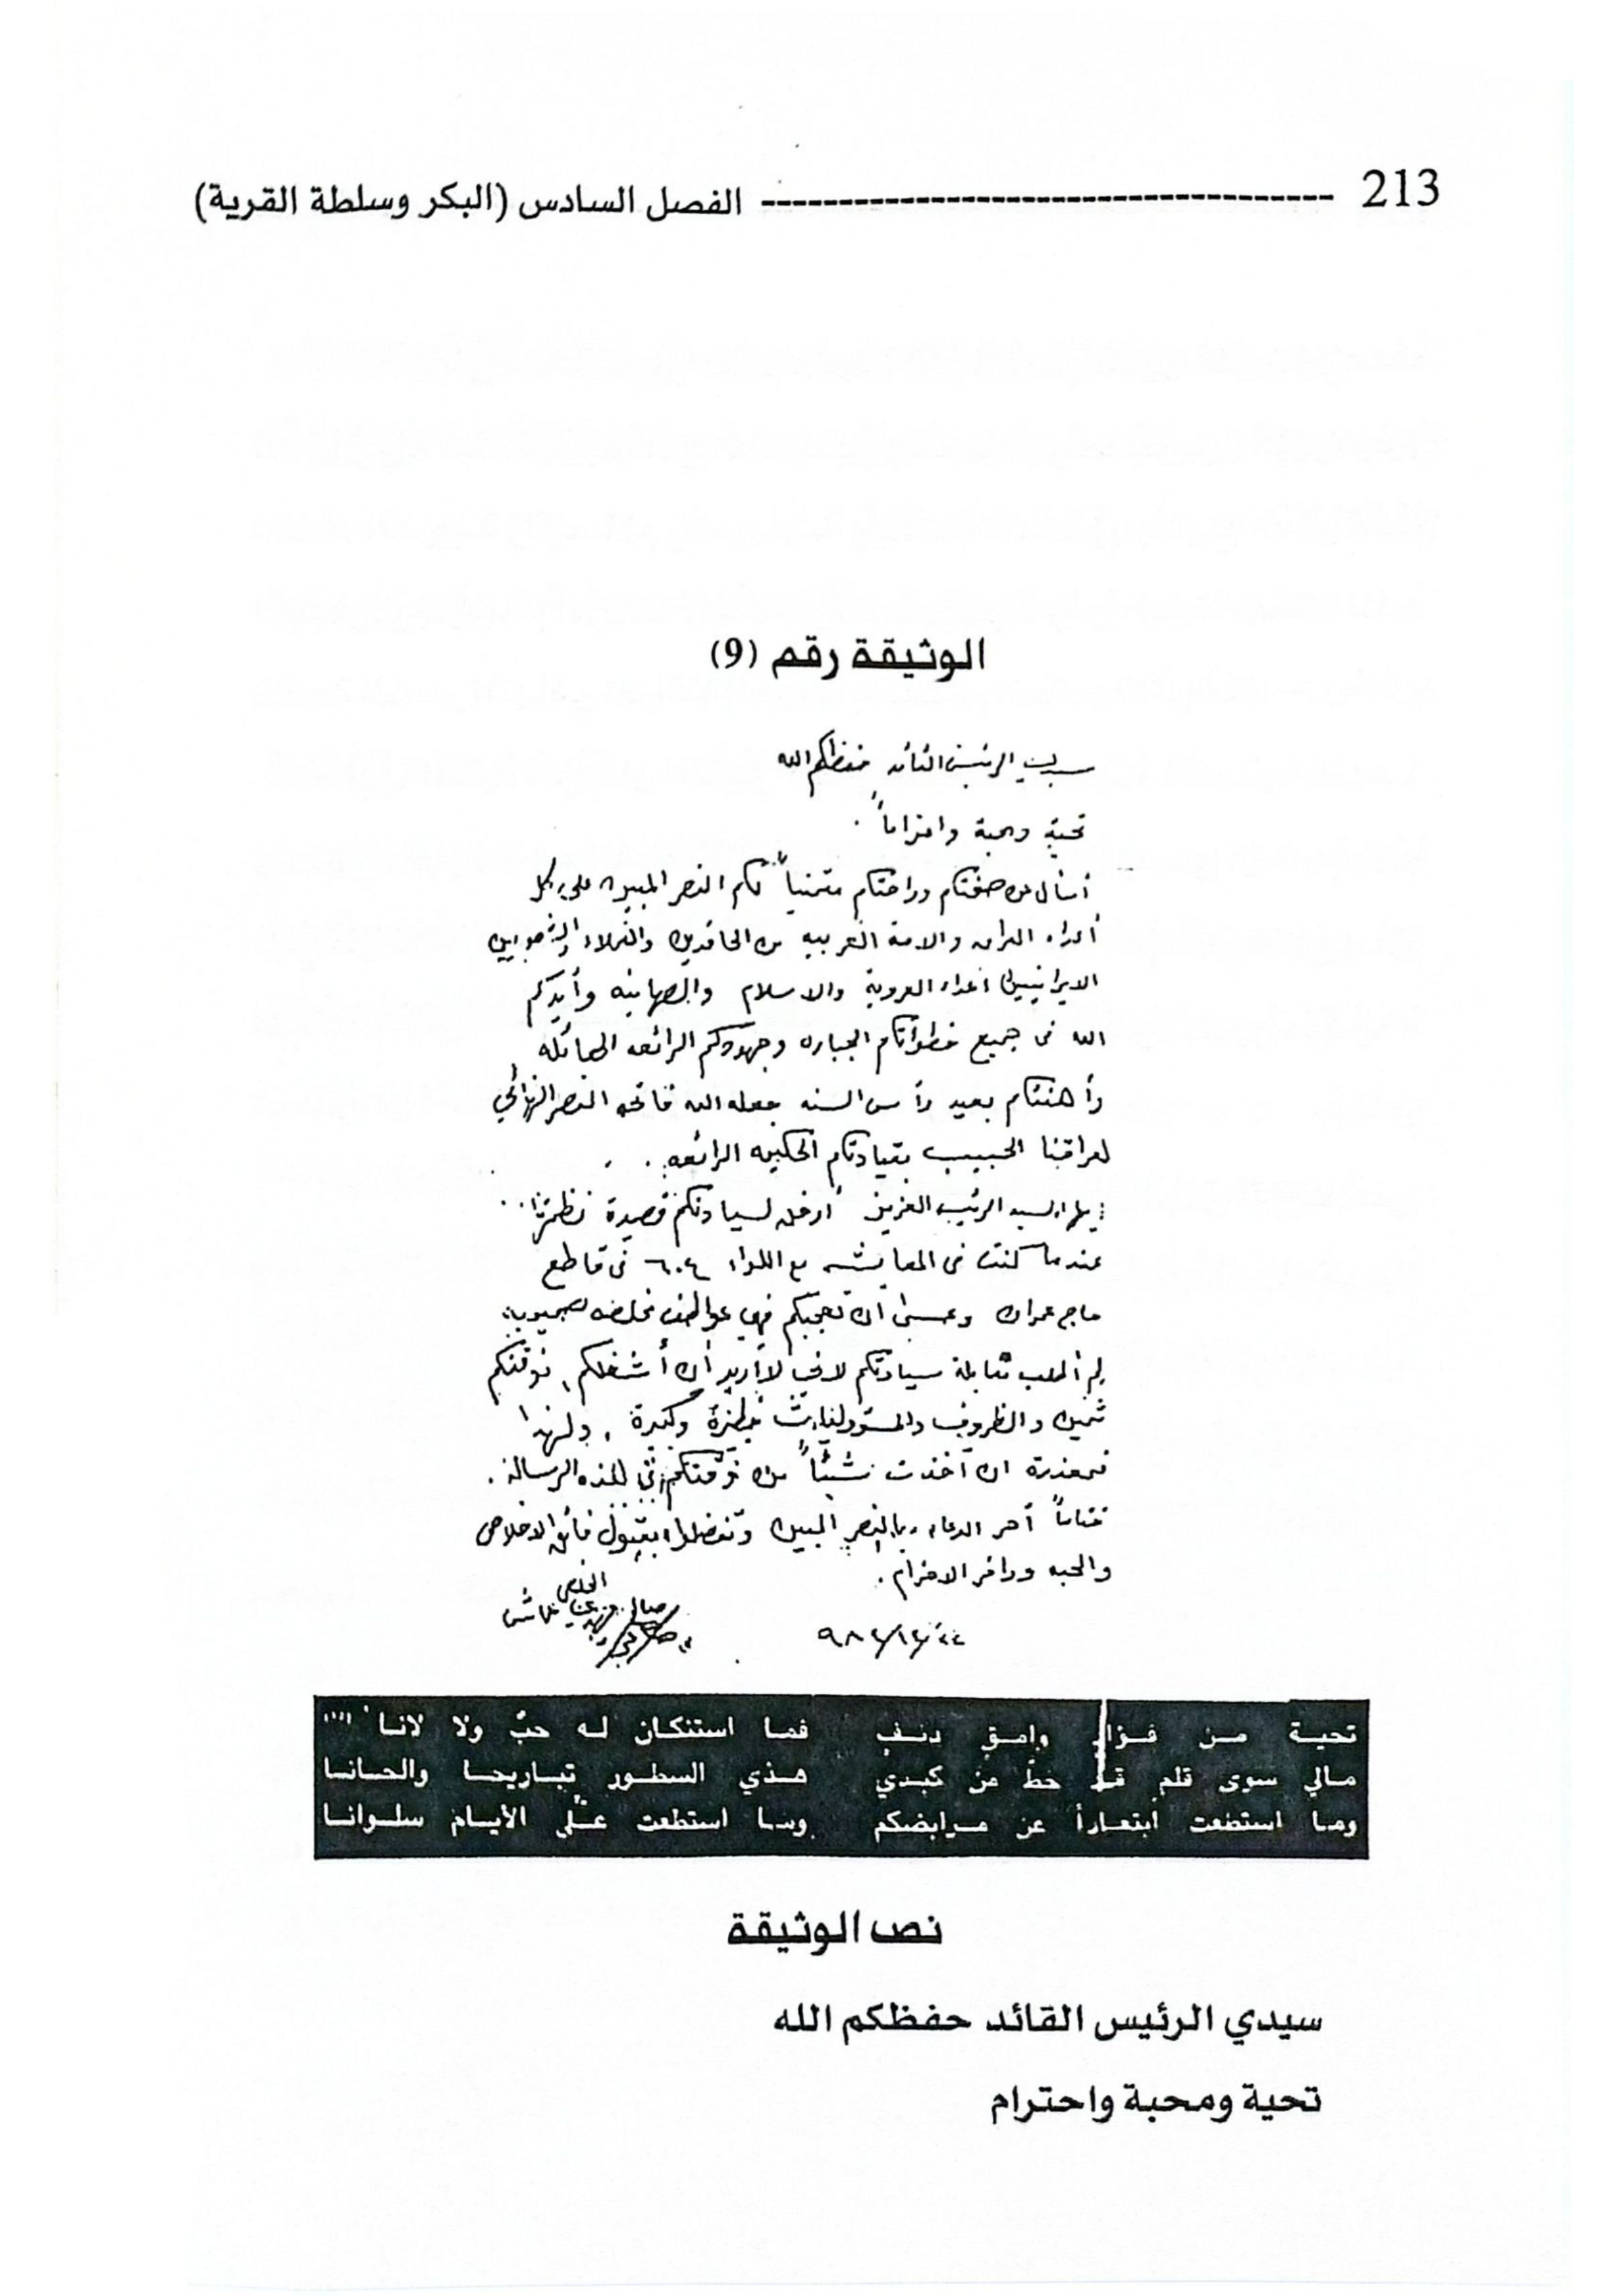 213 ------------------------------------ الفصل السادس (البكر وسلطة القرية)
الوثيقة رقم (9)
سيدي الرئيس القائد حفظكم الله
تحية ومحبة واحتراماً .
أسأل عن صحتكم وراحتكم متمنياً لكم النصر المبين على كل
أعداء العراق والامة العربيه من الحاقدين والعملاء
الايرانيين اعداء العروبة والاسلام والصهاينه وأيدكم
الله في جميع خطواتكم الجباره وجهودكم الرائعه الهائله
وأهنئكم بعيد رأس السنه جعله الله فاتحة النصر النهائي
لعراقنا الحبيب بقيادتكم الحكيمه الرائعه . .
السيد الرئيس العزيز ارفق لسيادتكم قصيدة نظمتها . .
عندما كنت في المعايشه مع اللواء ٦٠٤ في قاطع
حاج عمران وعسى أن تعجبكم فهي عواطف مخلصه
لم أطلب مقابلة سيادتكم لانني لا أريد أن أشغلكم ، فوقتكم
ثمين والظروف والمسؤوليات خطرة وكبيرة ، ولهذا
فمعذرة ان أخذت شيئاً من وقتكم في هذه الرسالة .
ختاماً أحر الدعاء بالنصر المبين وتفضلوا بقبول فائق الاخلاص
والمحبه ووافر الاحترام .
المخلص
صالح مهدي عماش
٩٨٤/١٢/٢٢
تحية من فؤاد وامق دنف فما استكان له حبٌ ولا لانا
مالي سوى قلم قد خطّ من كبدي هذي السطور تباريحا والحانا
وما استطعت ابتعاداً عن مرابضكم وما استطعت على الأيام سلوانا
نص الوثيقة
سيدي الرئيس القائد حفظكم الله
تحية ومحبة واحترام